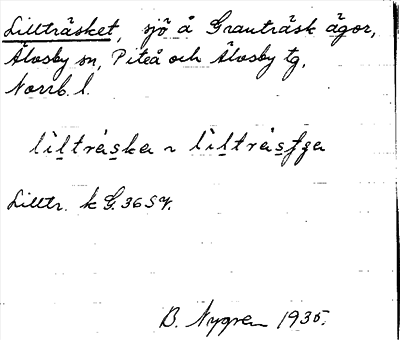 Lillträsket, sjö å Granträsk ägor,
Älvsby sn, Piteå och Älvsby tg,
Norrb. l.
lìltráska ~ lìltrásʃga
Lilltr. k G. 36 SV.
B. Nygren 1935.